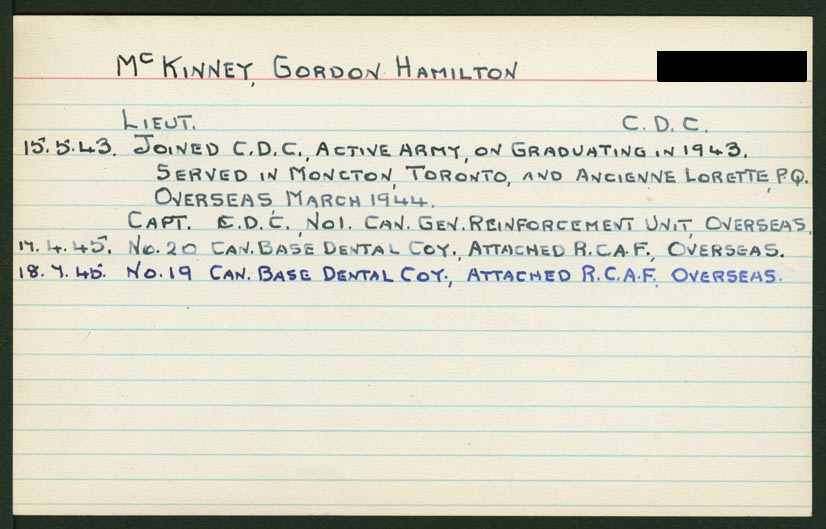 McKINNEY, GORDON HAMILTON
LIEUT. C.D.C.
15.5.43. JOINED C.D.C., ACTIVE ARMY, ON GRADUATING IN 1943.
SERVED IN MONCTON, TORONTO, AND ANCIENNE LORETTE, P.Q.
OVERSEAS MARCH 1944.
CAPT. C.D.C., NO1. CAN. GEN. REINFORCEMENT UNIT, OVERSEAS.
17.4.45. NO. 20 CAN. BASE DENTAL COY., ATTACHED R.C.A.F., OVERSEAS.
18.7.45. NO. 19 CAN. BASE DENTAL COY., ATTACHED R.C.A.F., OVERSEAS.